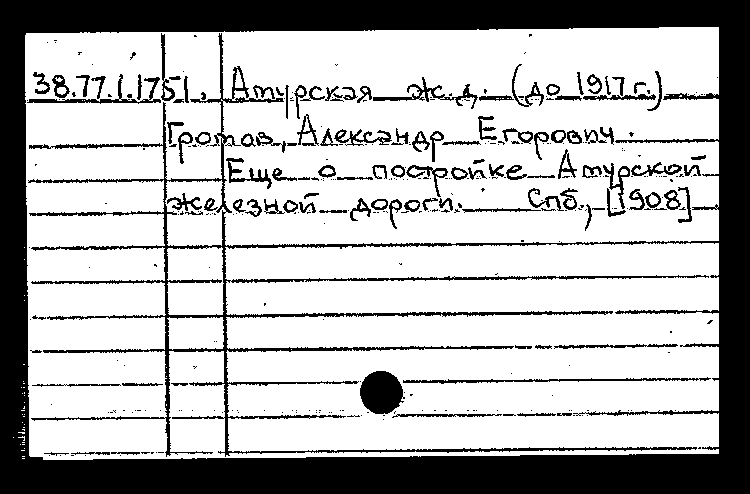 38.77.1.1751. Амурская ж.д. (до 1917г.)
Громов, Александр Егорович.
Еще о постройке Амурской
железной дороги. Спб., [1908]